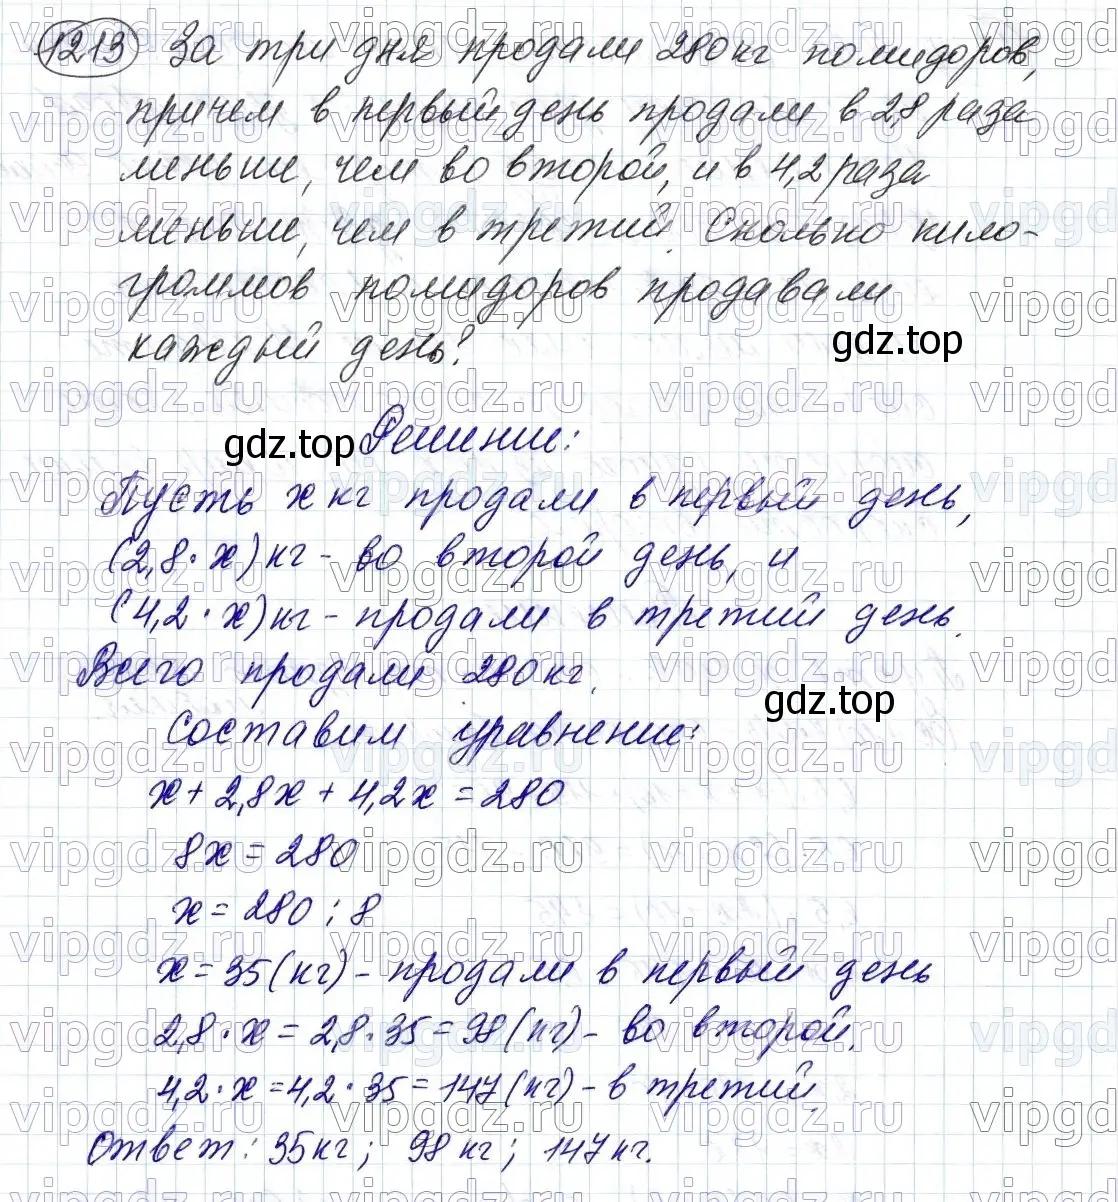 1213 За три дня продали 280 кг помидоров,
причем в первый день продали в 2,8 раза
меньше, чем во второй, и в 4,2 раза
меньше, чем в третий. Сколько кило-
граммов помидоров продавали
каждый день?
gdz.top
Решение:
gdz.top
Пусть x кг продали в первый день,
(2,8 · x) кг - во второй день, и
(4,2 · x) кг - продали в третий день.
Всего продали 280 кг.
gdz.top
Составим уравнение:
x + 2,8x + 4,2x = 280
8x = 280
x = 280 : 8
x = 35 (кг) - продали в первый день
2,8 · x = 2,8 · 35 = 98 (кг) - во второй.
4,2 · x = 4,2 · 35 = 147 (кг) - в третий.
Ответ: 35 кг; 98 кг; 147 кг.
vipgdz.ru